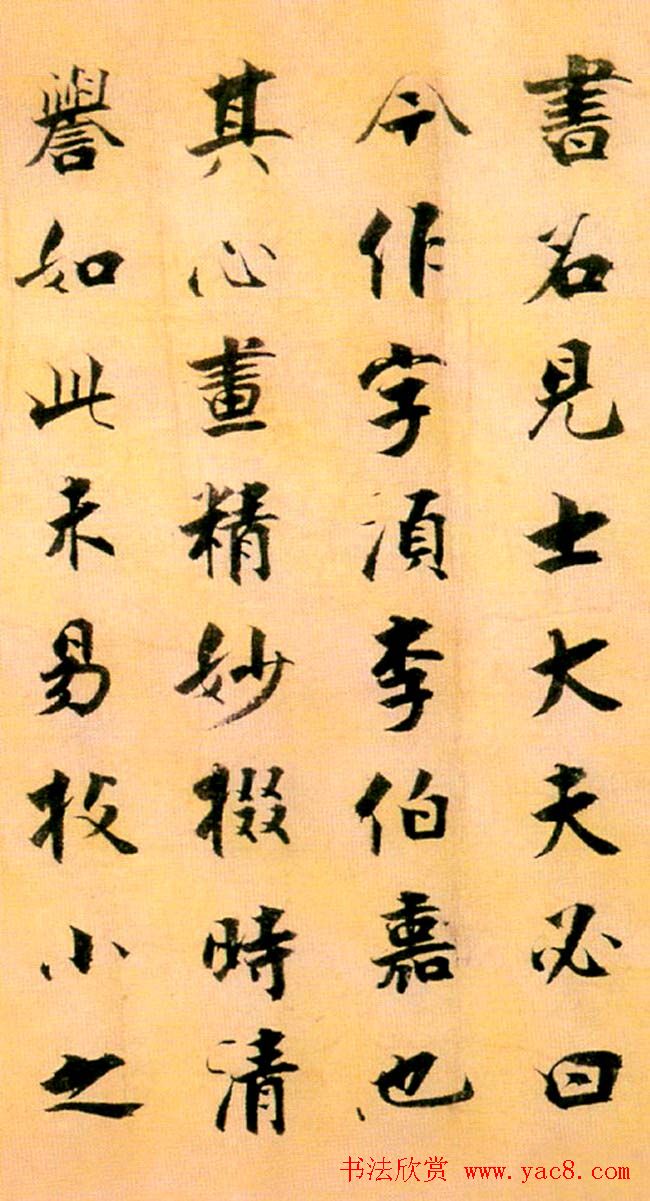 書名見士大夫必曰
今作字須李伯嘉也
其心畫精妙掇時清
譽如此未易枚小之
书法欣赏 www.yac8.com